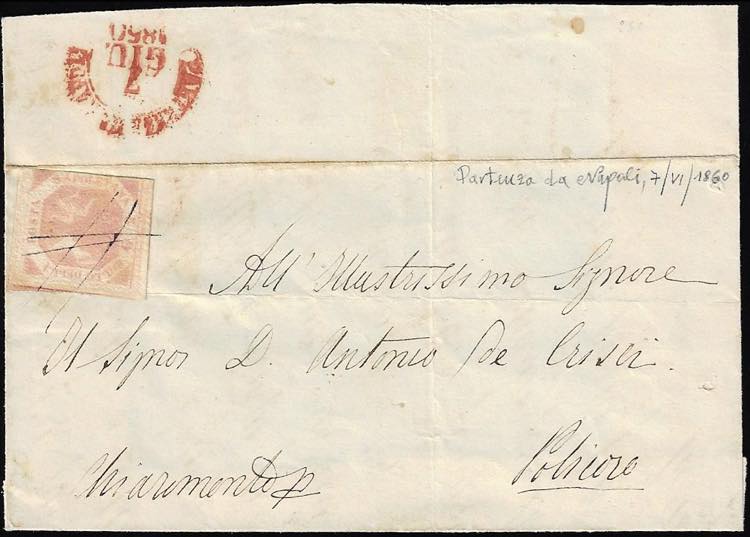 1860
GIU
7
Partenza da Napoli, 7/VI/1860
All' Illustrissimo Signore
Il Signor D. Antonio de Crisci
Chiaromonte p
Policoro